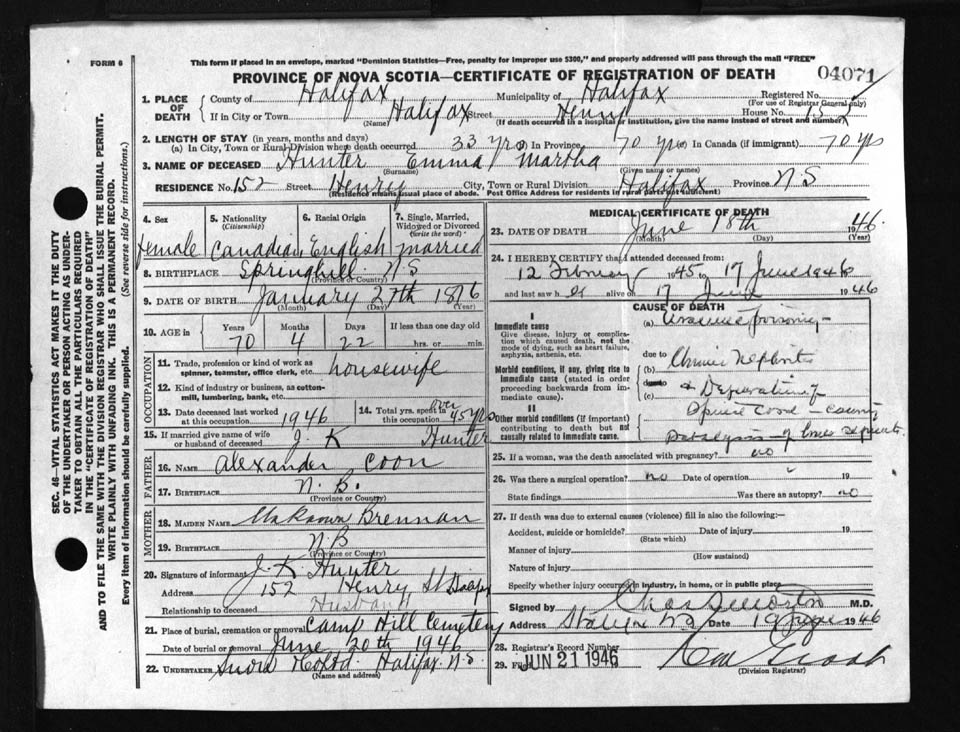 FORM 6
This form if placed in an envelope, marked "Dominion Statistics—Free, penalty for improper use $300," and properly addressed will pass through the mail "FREE"
PROVINCE OF NOVA SCOTIA—CERTIFICATE OF REGISTRATION OF DEATH
04071
SEC. 46—VITAL STATISTICS ACT MAKES IT THE DUTY
OF THE UNDERTAKER OR PERSON ACTING AS UNDER-
TAKER TO OBTAIN ALL THE PARTICULARS REQUIRED
IN THE "CERTIFICATE OF REGISTRATION OF DEATH"
AND TO FILE THE SAME WITH THE DIVISION REGISTRAR WHO SHALL ISSUE THE BURIAL PERMIT.
WRITE PLAINLY WITH UNFADING INK. THIS IS A PERMANENT RECORD.
Every item of information should be carefully supplied. (See reverse side for instructions.)
1. PLACE OF DEATH County of Halifax Municipality of Halifax Registered No.
(For use of Registrar General only)
If in City or Town Halifax Street Henry House No. 152
(Name) (If death occurred in a hospital or institution, give the name instead of street and number)
2. LENGTH OF STAY (in years, months and days)
(a) In City, Town or Rural Division where death occurred 33 yrs In Province 70 yrs (c) In Canada (if immigrant) 70 yrs
3. NAME OF DECEASED Hunter Emma Martha
(Surname) (Given name or names)
RESIDENCE No. 152 Street Henry City, Town or Rural Division Halifax Province N.S
(Residence means usual place of abode. Post Office Address for residents in rural parts not sufficient)
4. Sex 5. Nationality (Citizenship) 6. Racial Origin 7. Single, Married, Widowed or Divorced (Write the word)
female Canadian English married
8. BIRTHPLACE Springhill N S
(Province or Country)
9. DATE OF BIRTH January 27th 1876
(Month) (Day) (Year)
10. AGE in Years Months Days If less than one day old
70 4 22 hrs. or min.
OCCUPATION
11. Trade, profession or kind of work as spinner, teamster, office clerk, etc. housewife
12. Kind of industry or business, as cotton-mill, lumbering, bank, etc.
13. Date deceased last worked at this occupation 1946 14. Total yrs. spent in this occupation over 45 yrs
15. If married give name of wife or husband of deceased J. K Hunter
FATHER
16. NAME Alexander Coon
17. BIRTHPLACE N. B.
(Province or Country)
MOTHER
18. MAIDEN NAME Unknown Brennan
19. BIRTHPLACE N. B
(Province or Country)
20. Signature of informant J. K Hunter
Address 152 Henry St
Relationship to deceased Husband
21. Place of burial, cremation or removal Camp Hill Cemetery
Date of burial or removal June 20th 1946
22. UNDERTAKER Snow & Co Ltd. Halifax N.S
(Name and address)
MEDICAL CERTIFICATE OF DEATH
23. DATE OF DEATH June 18th 1946
(Month) (Day) (Year)
24. I HEREBY CERTIFY that I attended deceased from:
12 February 1945 to 17 June 1946
and last saw her alive on 17 June 1946
CAUSE OF DEATH
I
Immediate cause
Give disease, injury or complication which caused death, not the mode of dying, such as heart failure, asphyxia, asthenia, etc.
(a) poisoning
due to
Morbid conditions, if any, giving rise to immediate cause (stated in order proceeding backwards from immediate cause).
(b) Chronic Nephritis
due to
(c)
II
Other morbid conditions (if important) contributing to death but not causally related to immediate cause.
paralysis of
25. If a woman, was the death associated with pregnancy? no
26. Was there a surgical operation? no Date of operation 19
State findings Was there an autopsy? no
27. If death was due to external causes (violence) fill in also the following:
Accident, suicide or homicide? Date of injury 19
(State which)
Manner of injury
(How sustained)
Nature of injury
Specify whether injury occurred in industry, in home, or in public place
Signed by M.D.
Address Halifax N.S Date 19 June 1946
28. Registrar's Record Number
29. Filed JUN 21 1946
(Division Registrar)